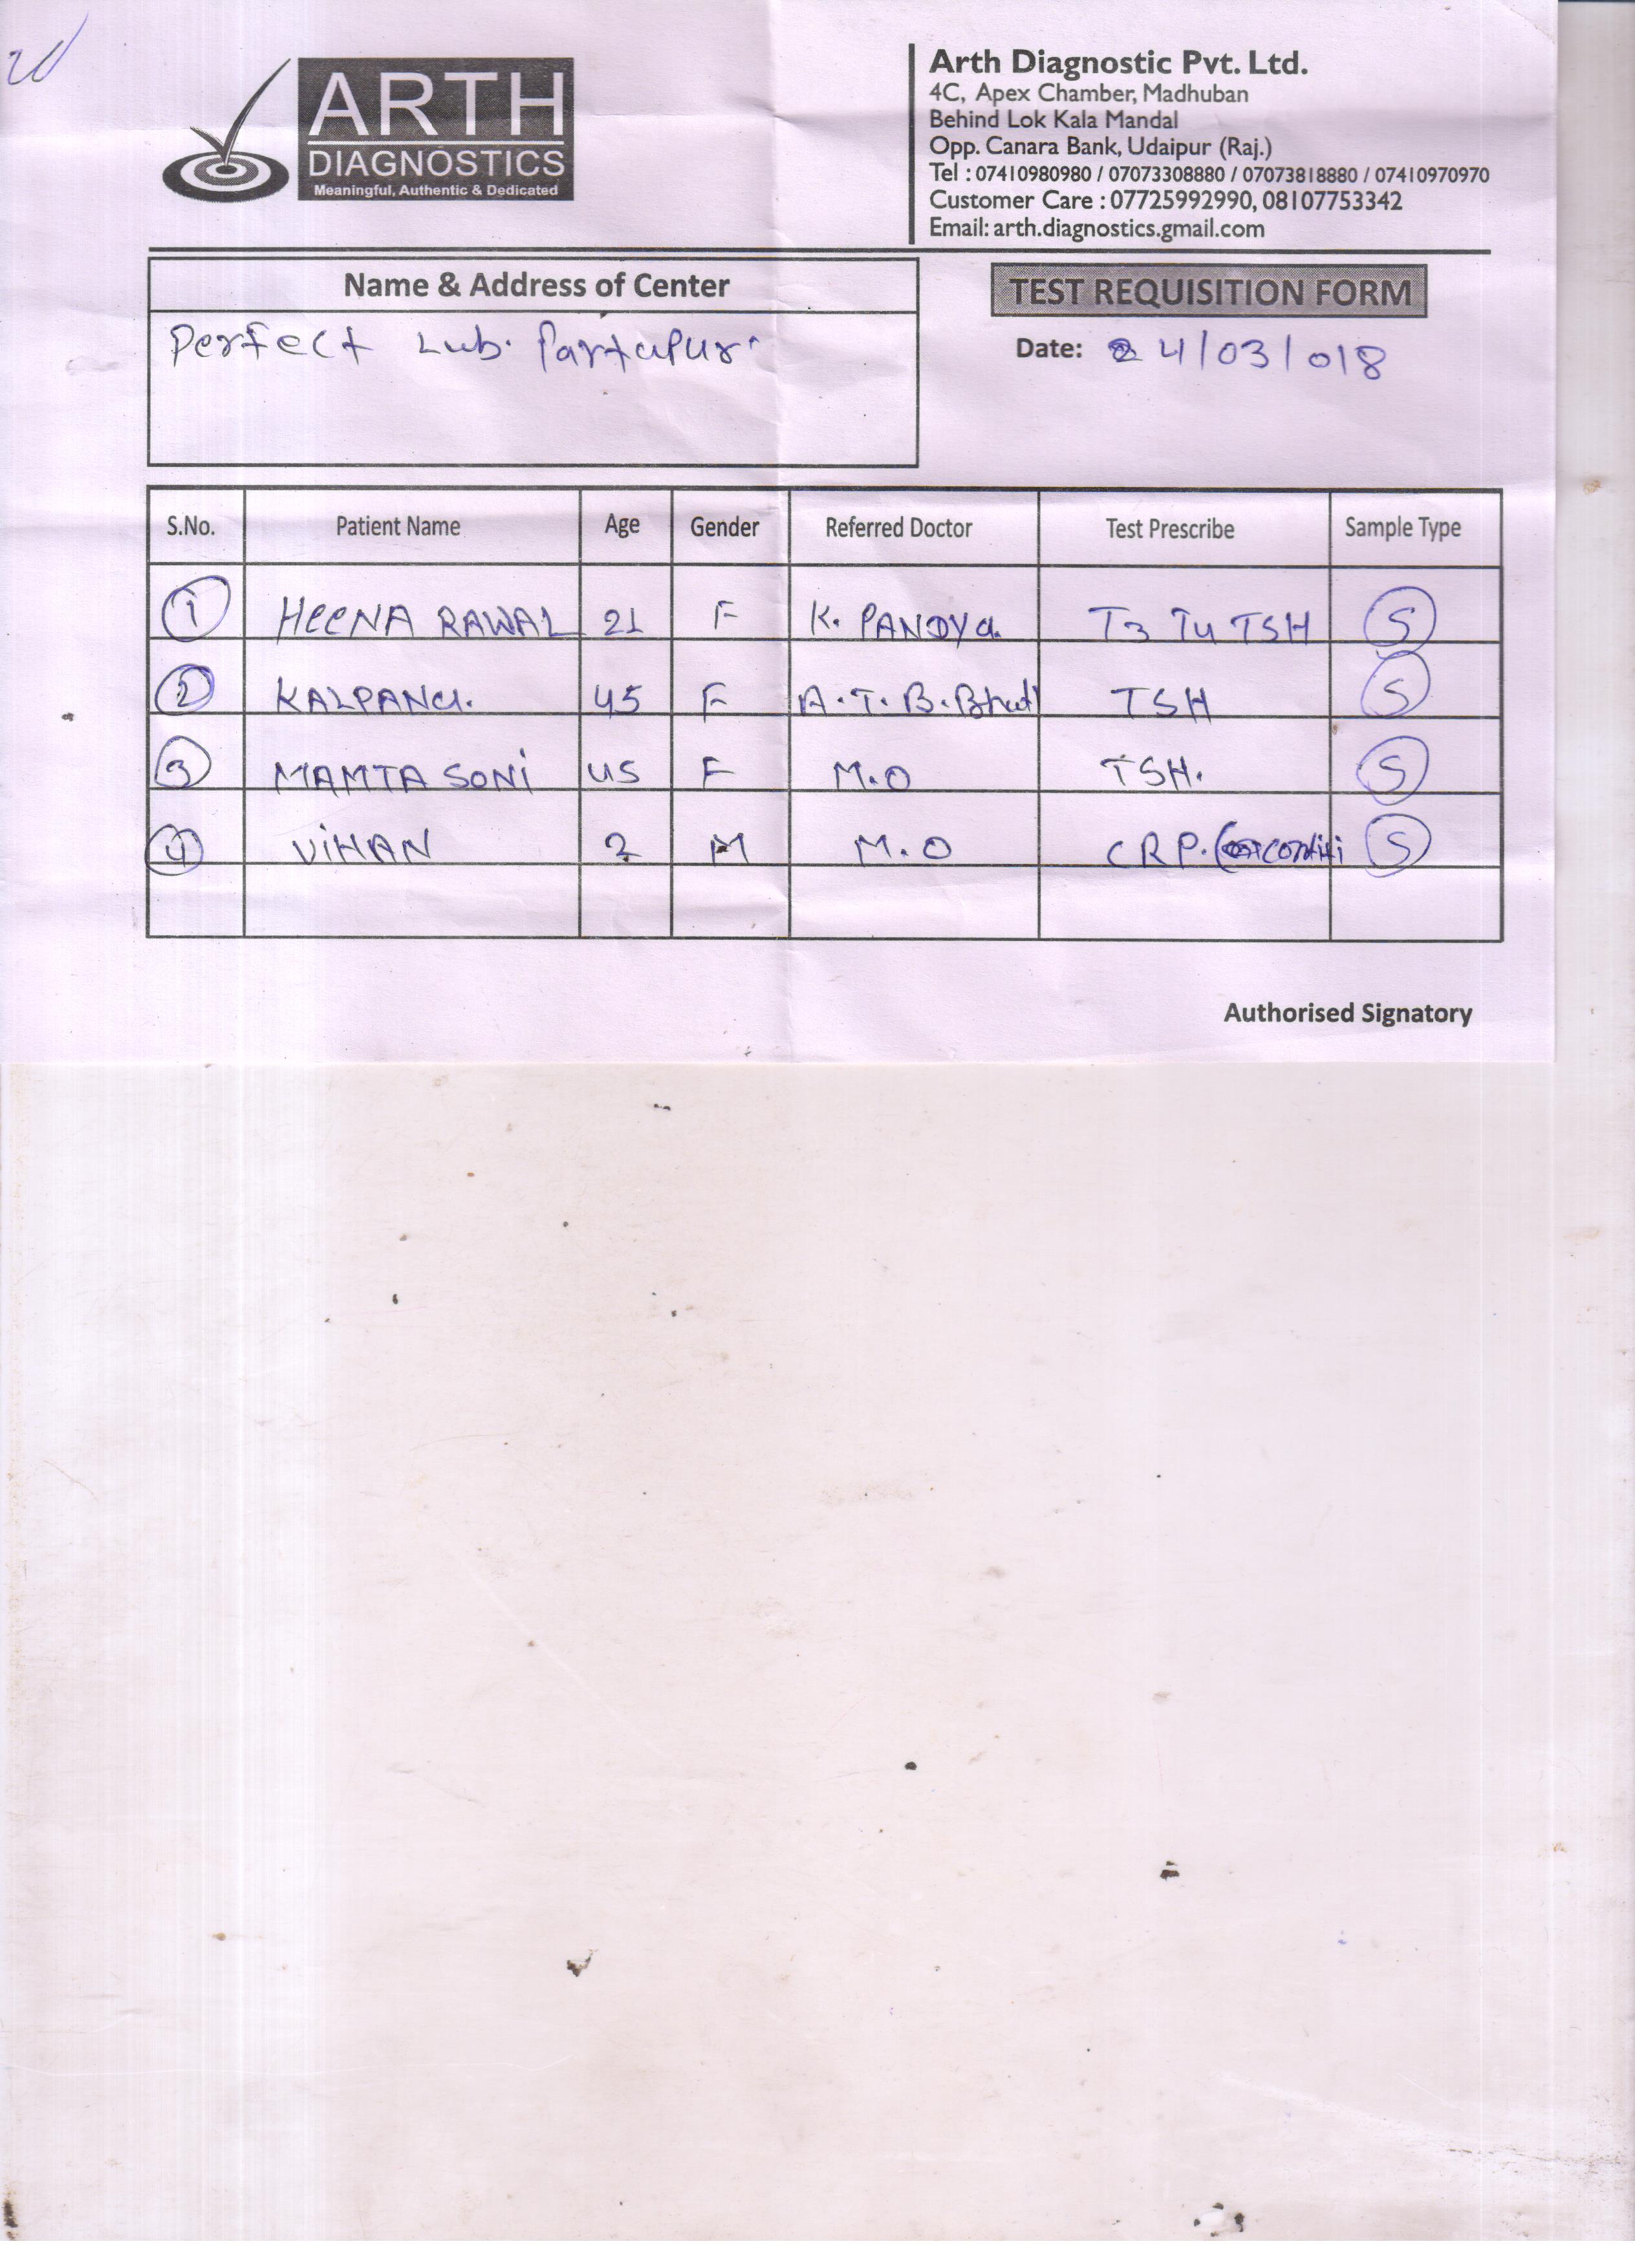 ARTH
DIAGNOSTICS
Meaningful, Authentic & Dedicated
Arth Diagnostic Pvt. Ltd.
4C, Apex Chamber, Madhuban
Behind Lok Kala Mandal
Opp. Canara Bank, Udaipur (Raj.)
Tel : 07410980980 / 07073308880 / 07073818880 / 07410970970
Customer Care : 07725992990, 08107753342
Email: arth.diagnostics.gmail.com
Name & Address of Center
TEST REQUISITION FORM
Perfect Lab. Partapur
Date: 24/03/018
S.No. Patient Name Age Gender Referred Doctor Test Prescribe Sample Type
1 HEENA RAWAL 21 F K. PANDYa. T3 T4 TSH S
2 KALPANa. 45 F A.T.B.Bhatt TSH S
3 MAMTA SONi 45 F M.O TSH. S
4 ViHAN 2 M M.O CRP. S
Authorised Signatory